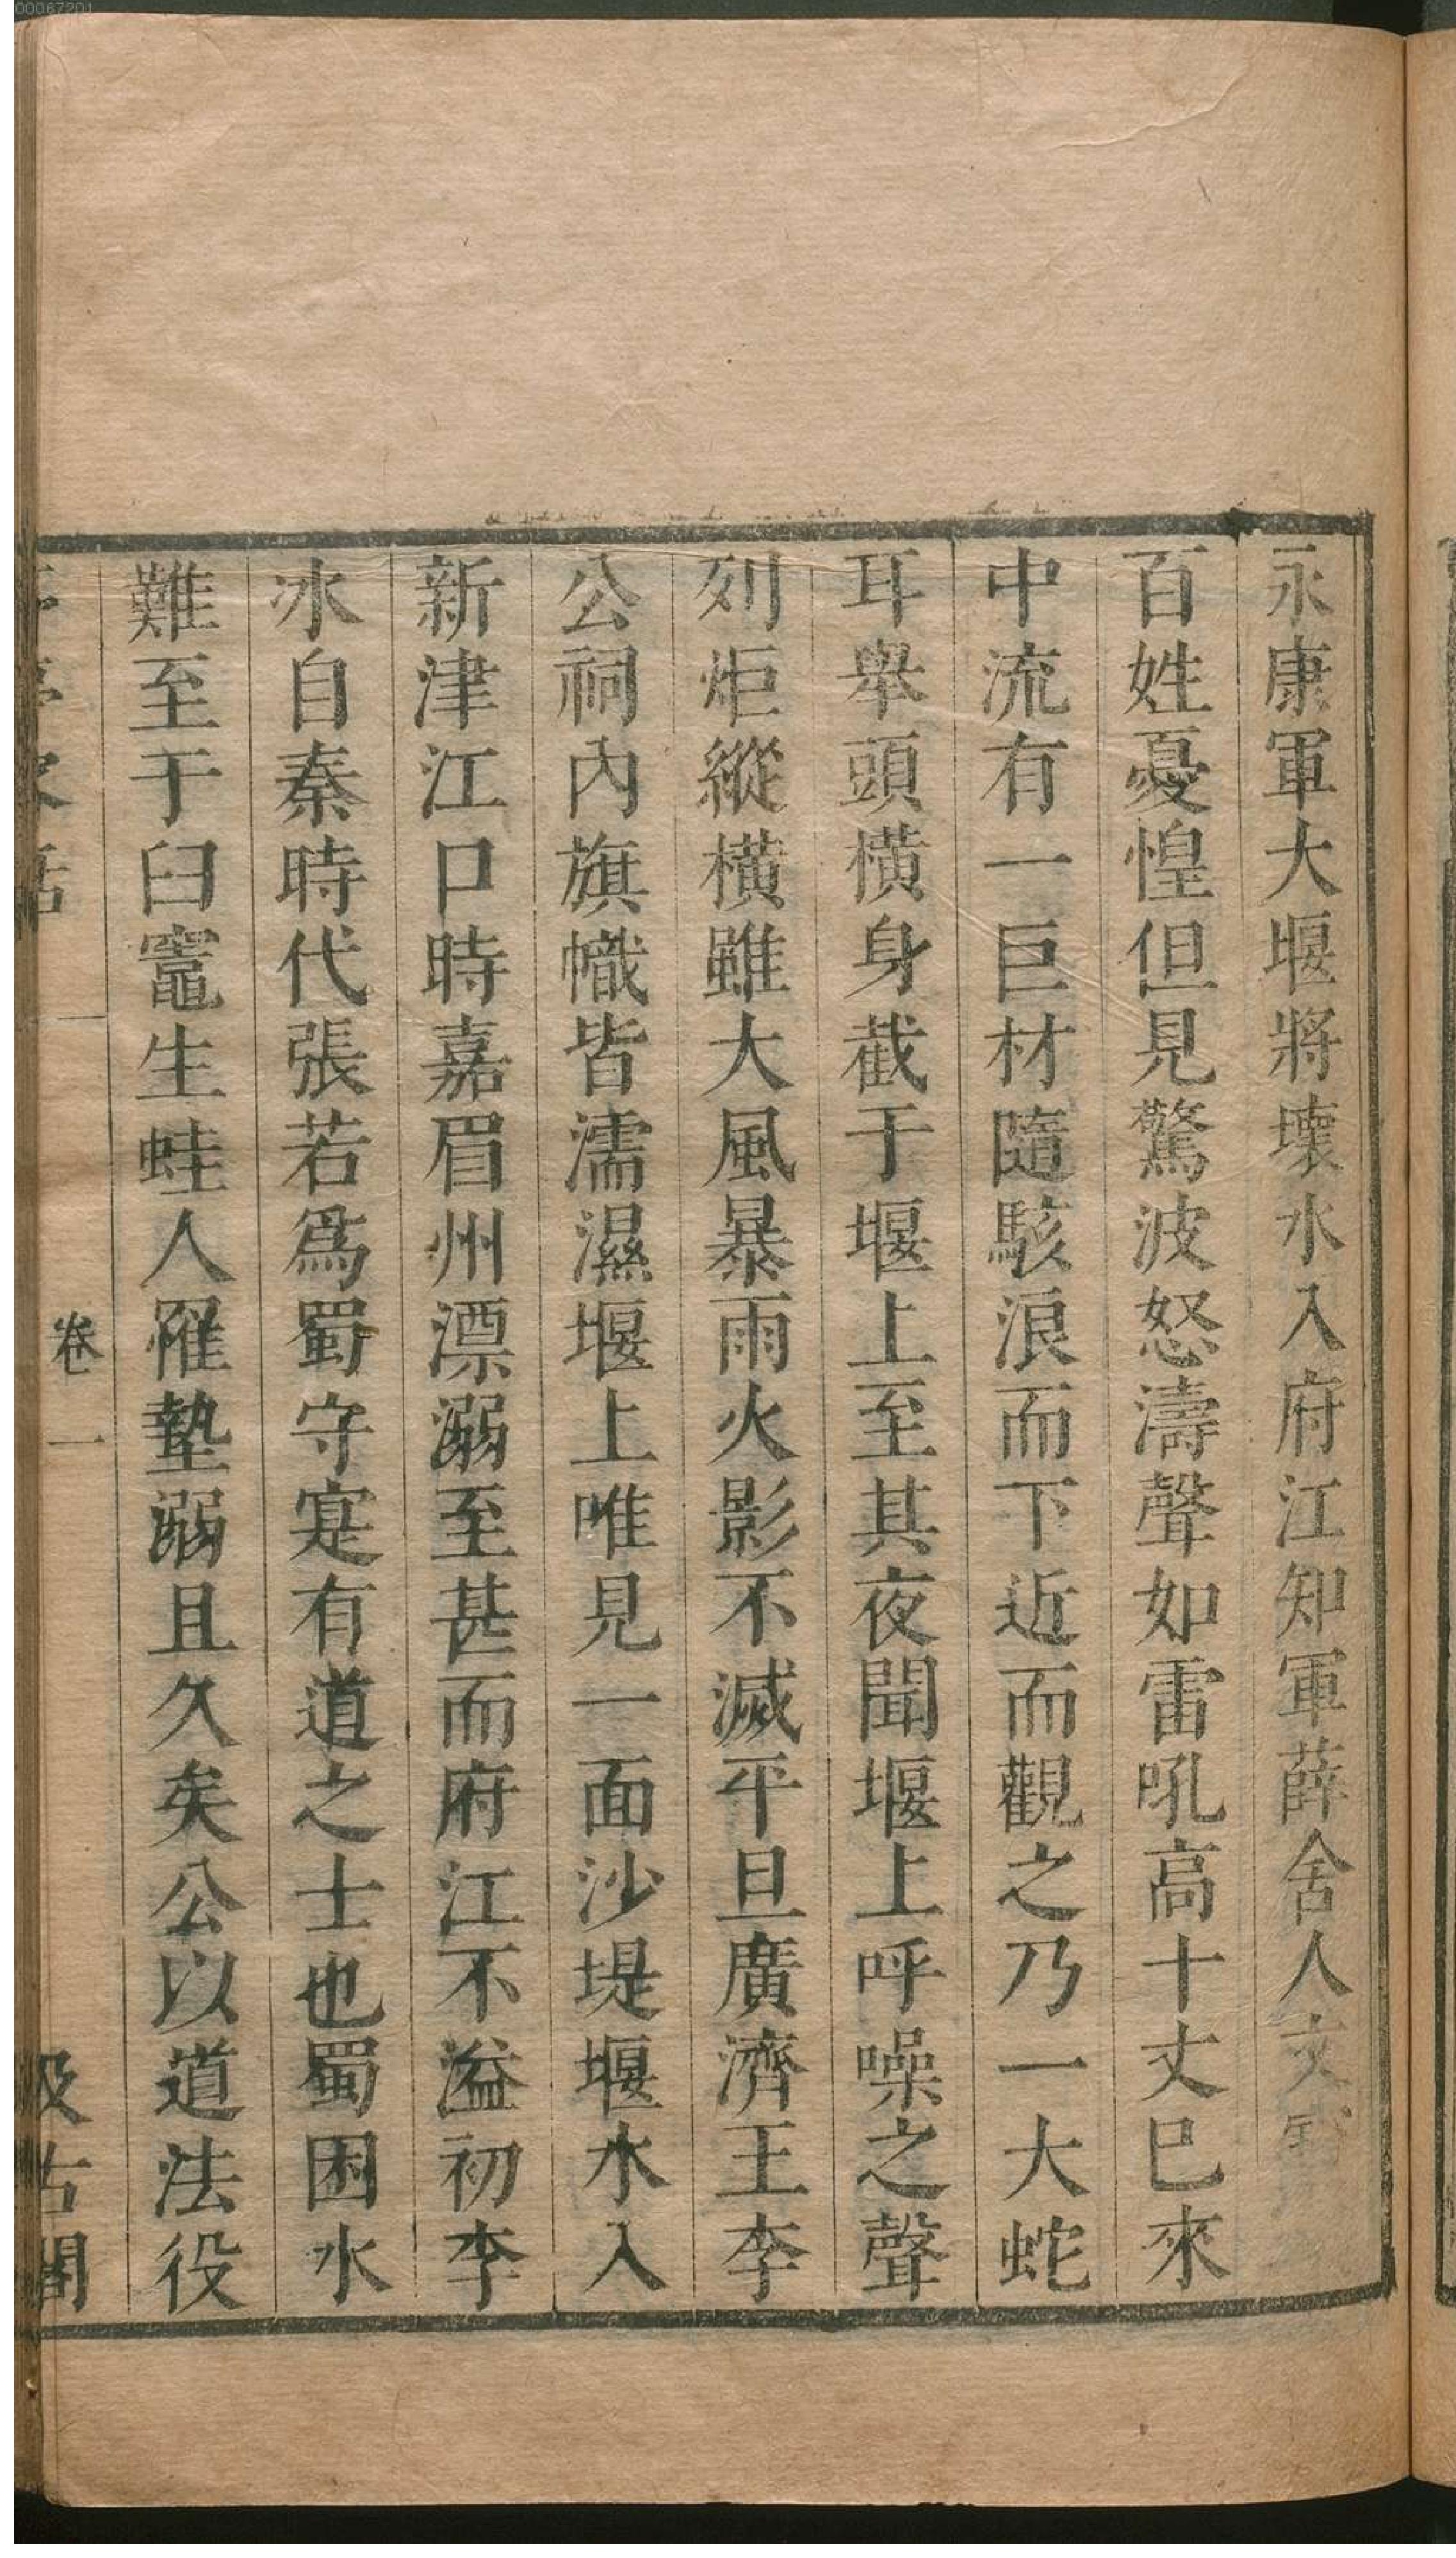 00067201
永康軍大堰將壞水入府江知軍薛舍人文寶
百姓憂惶但見驚波怒濤聲如雷吼高十丈巳來
中流有一巨材隨駭浪而下近而觀之乃一大蛇
耳舉頭橫身截于堰上至其夜聞堰上呼噪之聲
列炬縱橫雖大風暴雨火影不滅平旦廣濟王李
公祠內旗幟皆濡濕堰上唯見一面沙堤堰水入
新津江口時嘉眉州漂溺至甚而府江不溢初李
冰自秦時代張若爲蜀守寔有道之士也蜀困水
難至于臼竈生蛙人罹墊溺且久矣公以道法役
卷一
汲古閣